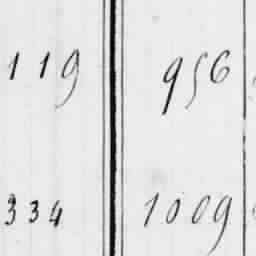 119 956
334 1009